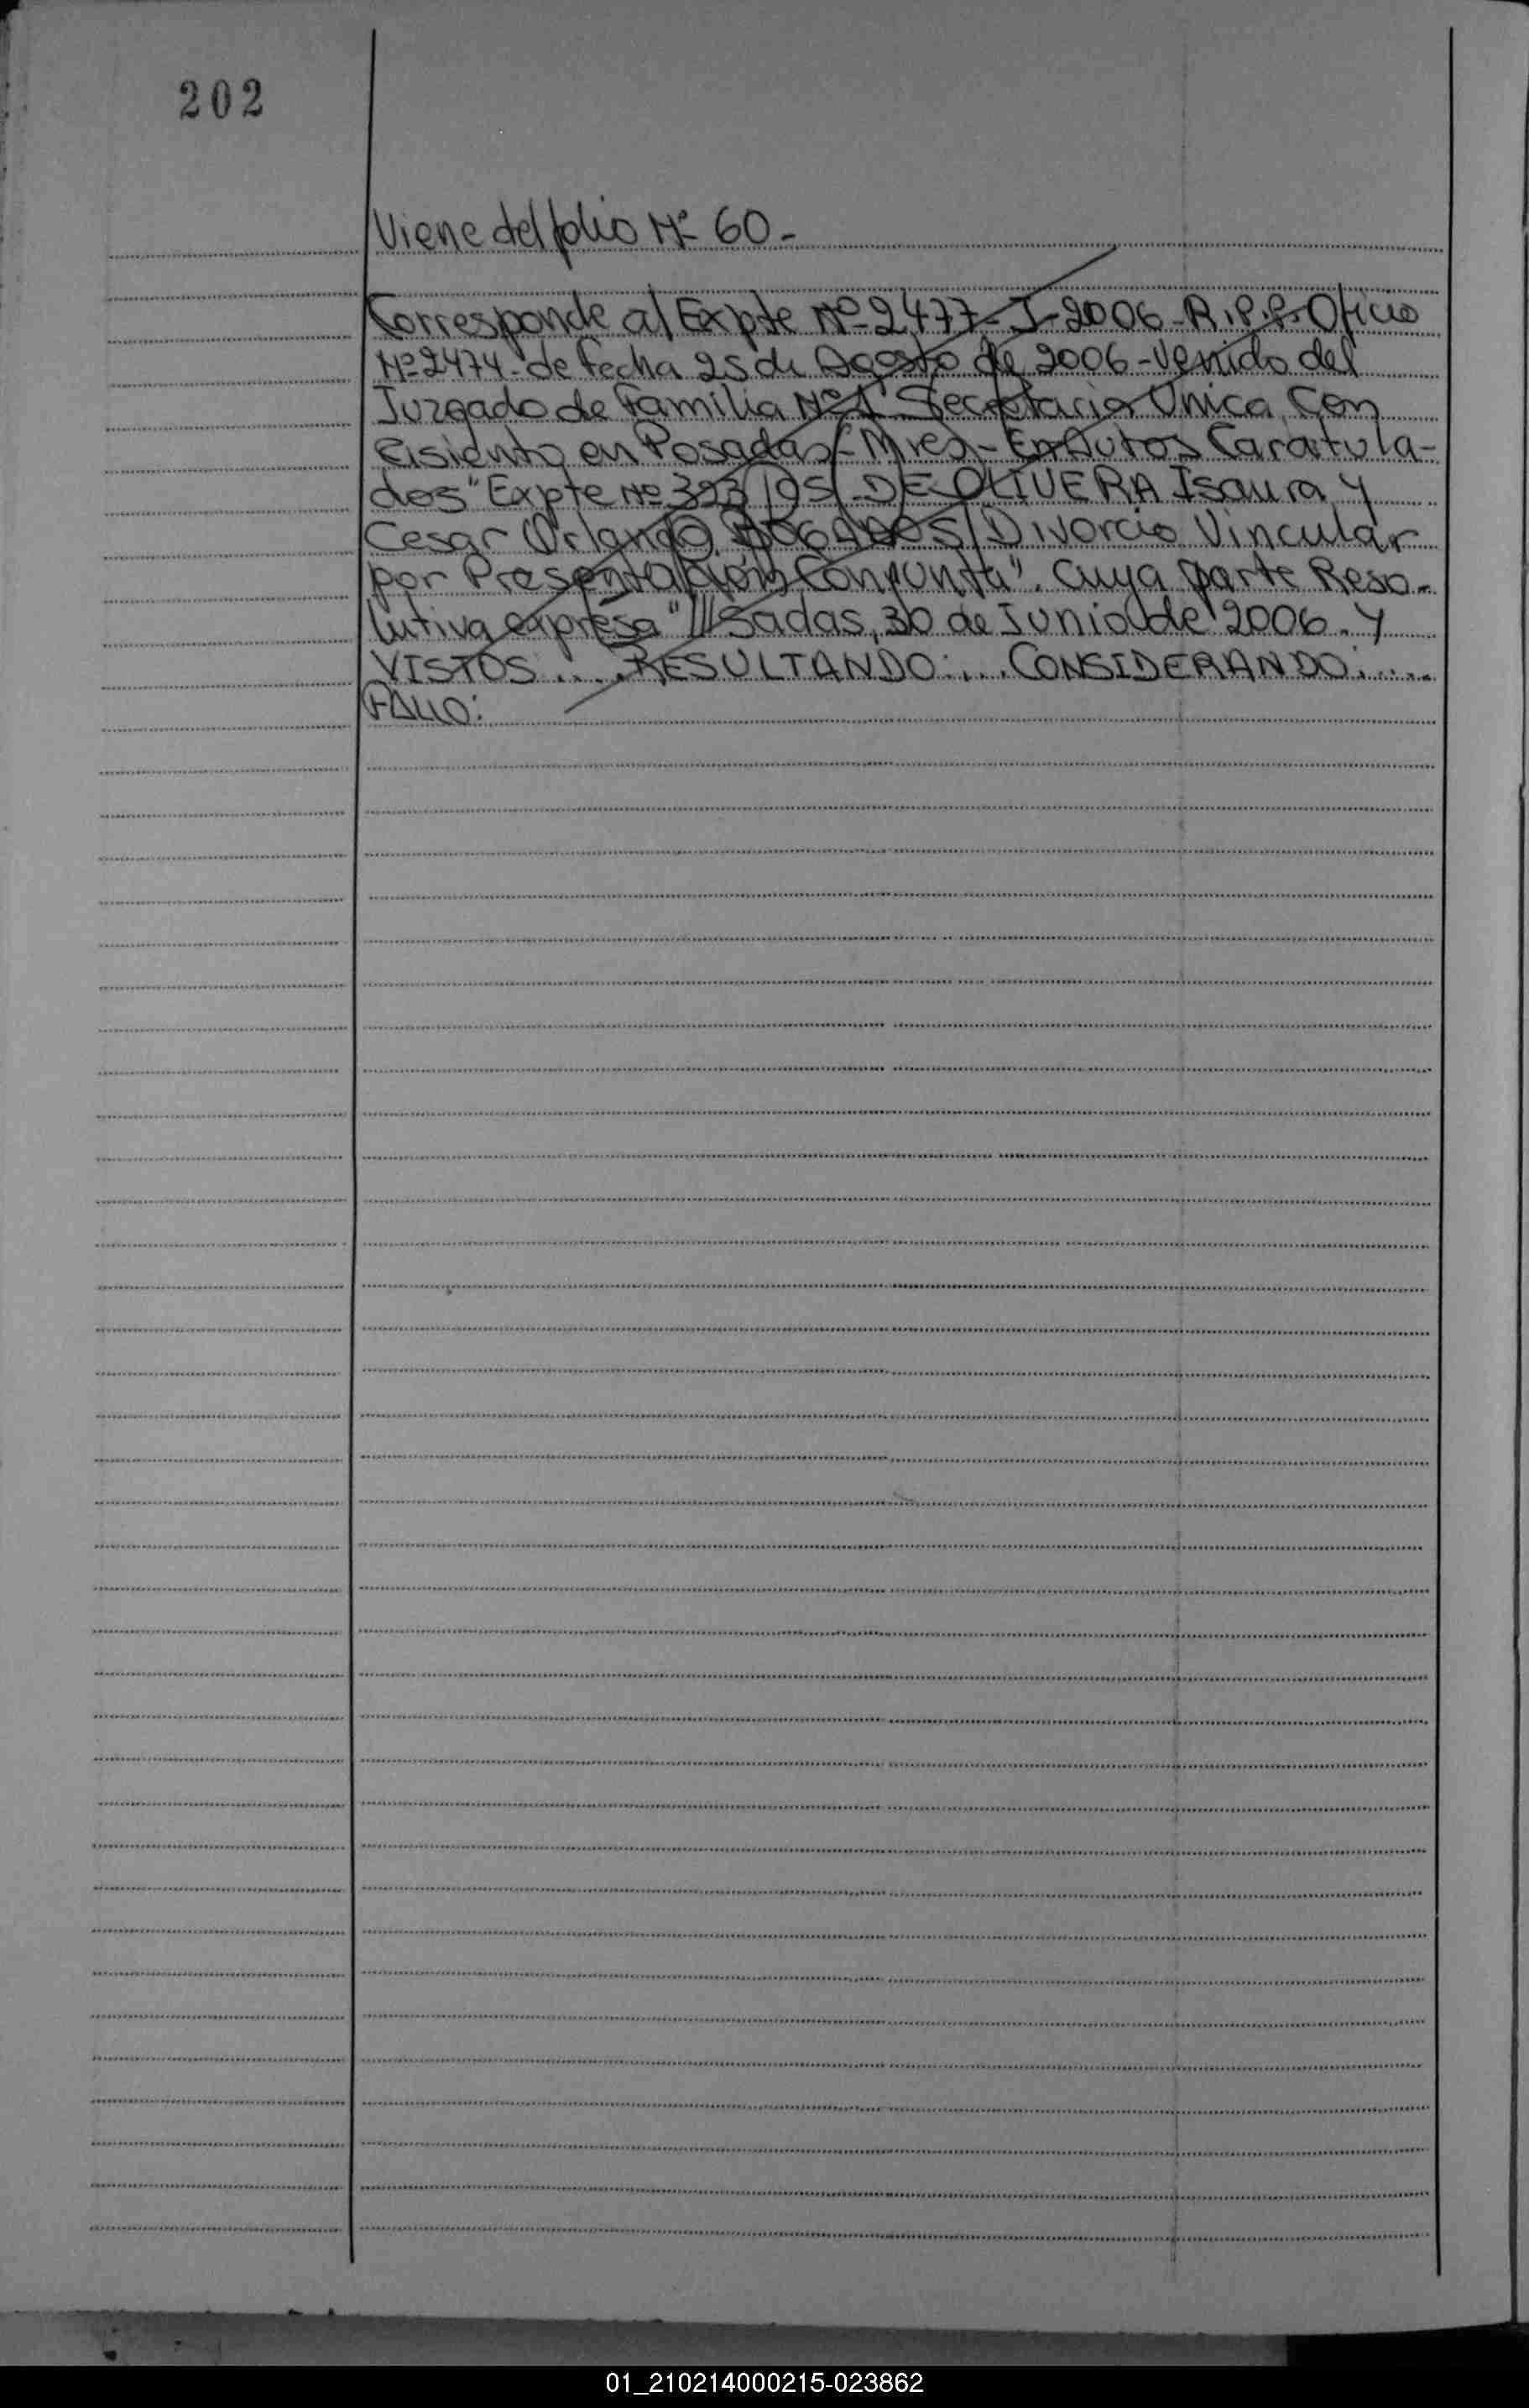 202
Viene del folio Nº 60-
Corresponde al Expte Nº 2477-J-2006-R.P.P-Oficio
Nº 2474- de fecha 25 de Agosto de 2006-Venido del
Juzgado de Familia Nº 1 Secretaria Unica Con
asiento en Posadas-Mnes-En Autos Caratula-
dos "Expte Nº 323/05 DE OLIVERA Isaura y
Cesar Orlando S/Divorcio Vincular
por Presentación Conjunta". Cuya parte Reso-
lutiva expresa "///sadas, 30 de Junio de 2006. Y
VISTOS:.... RESULTANDO:.... CONSIDERANDO:.....
FALLO:
01_210214000215-023862